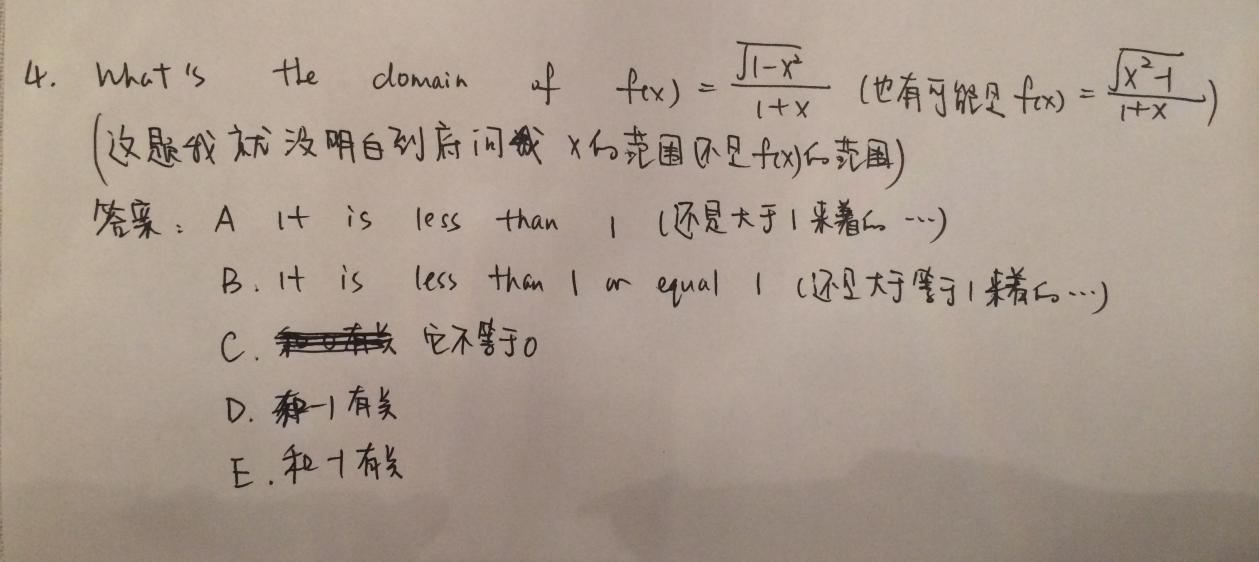 4. What's the domain of f(x) = √(1-x²)/(1+x) (也有可能是 f(x) = √(x²-1)/(1+x))
(这题我就没明白到底问我 x的范围还是f(x)的范围)
答案: A It is less than 1 (还是大于1来着的…)
B. It is less than 1 or equal 1 (还是大于等于1来着的…)
C. 它不等于0
D. 和-1有关
E. 和-1有关